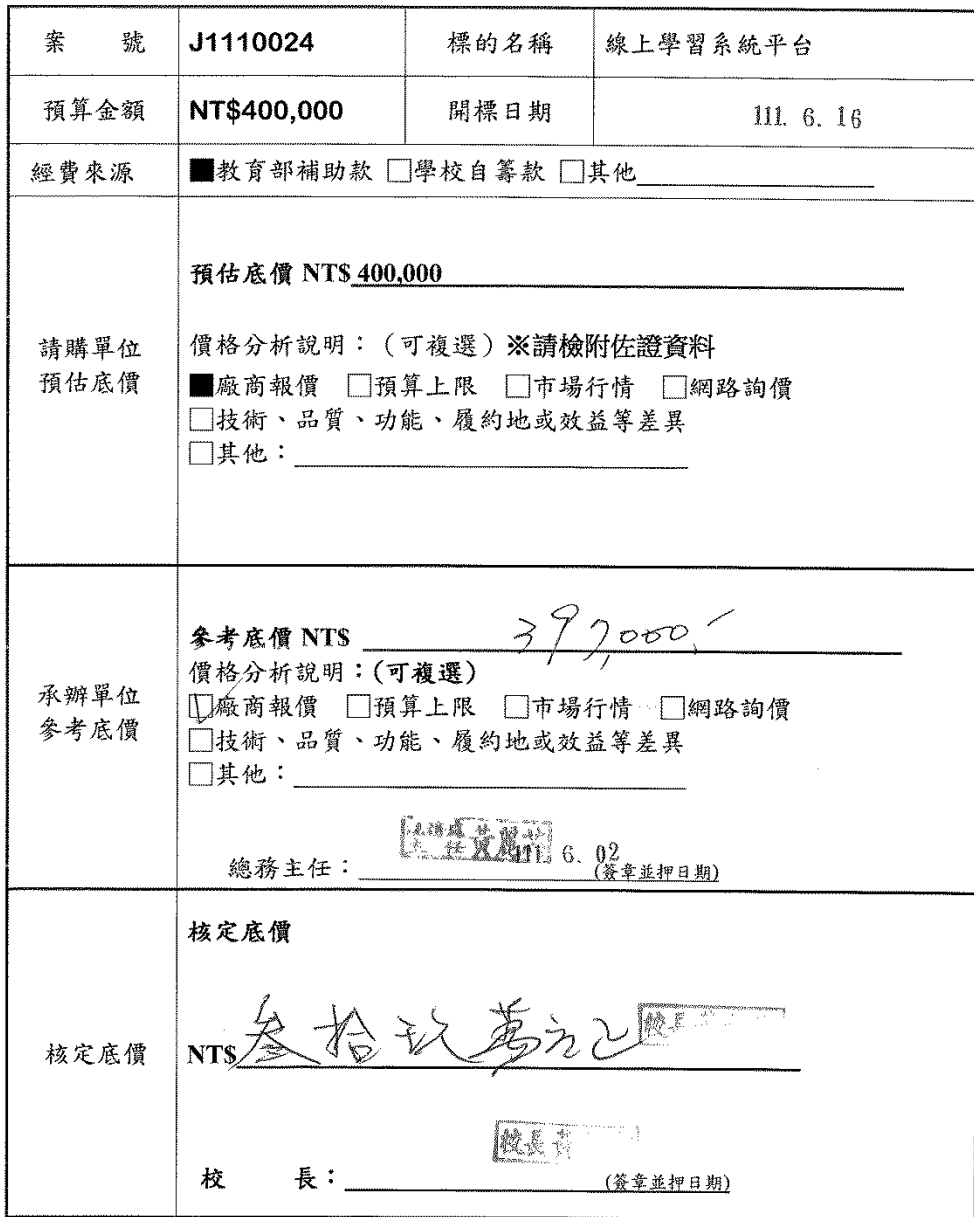 案 號 J1110024 標的名稱 線上學習系統平台
預算金額 NT$400,000 開標日期 111. 6. 16
經費來源 ■教育部補助款 □學校自籌款 □其他
預估底價 NT$ 400,000
請購單位
預估底價
價格分析說明：（可複選）※請檢附佐證資料
■廠商報價 □預算上限 □市場行情 □網路詢價
□技術、品質、功能、履約地或效益等差異
□其他：
承辦單位
參考底價
參考底價 NT$ 397,000
價格分析說明：(可複選)
☑廠商報價 □預算上限 □市場行情 □網路詢價
□技術、品質、功能、履約地或效益等差異
□其他：
總務主任： 111. 6. 02
(簽章並押日期)
核定底價
核定底價
NT$ 叁拾玖萬元 校長
校長
校 長： (簽章並押日期)